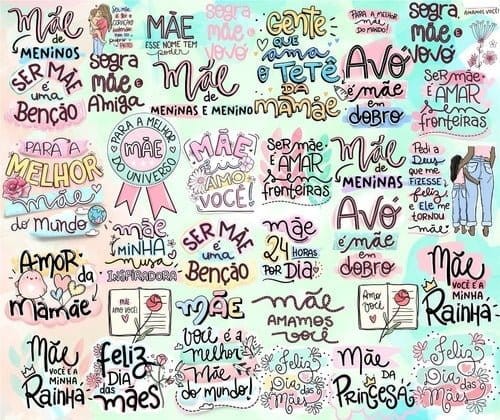 Mãe
de
MENINOS
MÃE
ESSE NOME TEM
Poder
Sogra
MÃE e
VOVÓ
Gente
QUE
ama
O TETÊ
DA
mamãe
PARA A MELHOR
mãe
DO MUNDO!
Sogra
MÃE e
VOVÓ
AMAMOS VOCÊ
SER MÃE
é uma
Benção
Sogra
MÃE e
Amiga
Mãe
de
MENINAS E MENINO
AVÓ
é MÃE
em
DOBRO
SER mãe
É AMAR
sem
fronteiras
PARA A
MELHOR
MÃE
do mundo!
PARA A MELHOR
MÃE
DO UNIVERSO
MÃE
Eu
AMO
VOCÊ!
SER mãe
É AMAR
sem
fronteiras
Mãe
de
MENINAS
Pedi a
Deus
que me
FIZESSE
feliz
e Ele me
TORNOU
mãe
mãe
MINHA
musa
INSPIRADORA
SER MÃE
é uma
Benção
mãe
24 HORAS
POR DIA
AVÓ
é MÃE
em
DOBRO
AMOR
da
Mamãe
MÃE
AMO VOCÊ!
MÃE
você é a
melhor
Mãe
do mundo!
mãe
AMAMOS
você
Amo
você
Mãe
VOCÊ É A
MINHA
Rainha
Mãe
VOCÊ É A
MINHA
Rainha
feliz
DIA
das
mães
Feliz
Dia das
Mães
Mãe
DA
PRINCESA
Feliz
Dia das
Mães